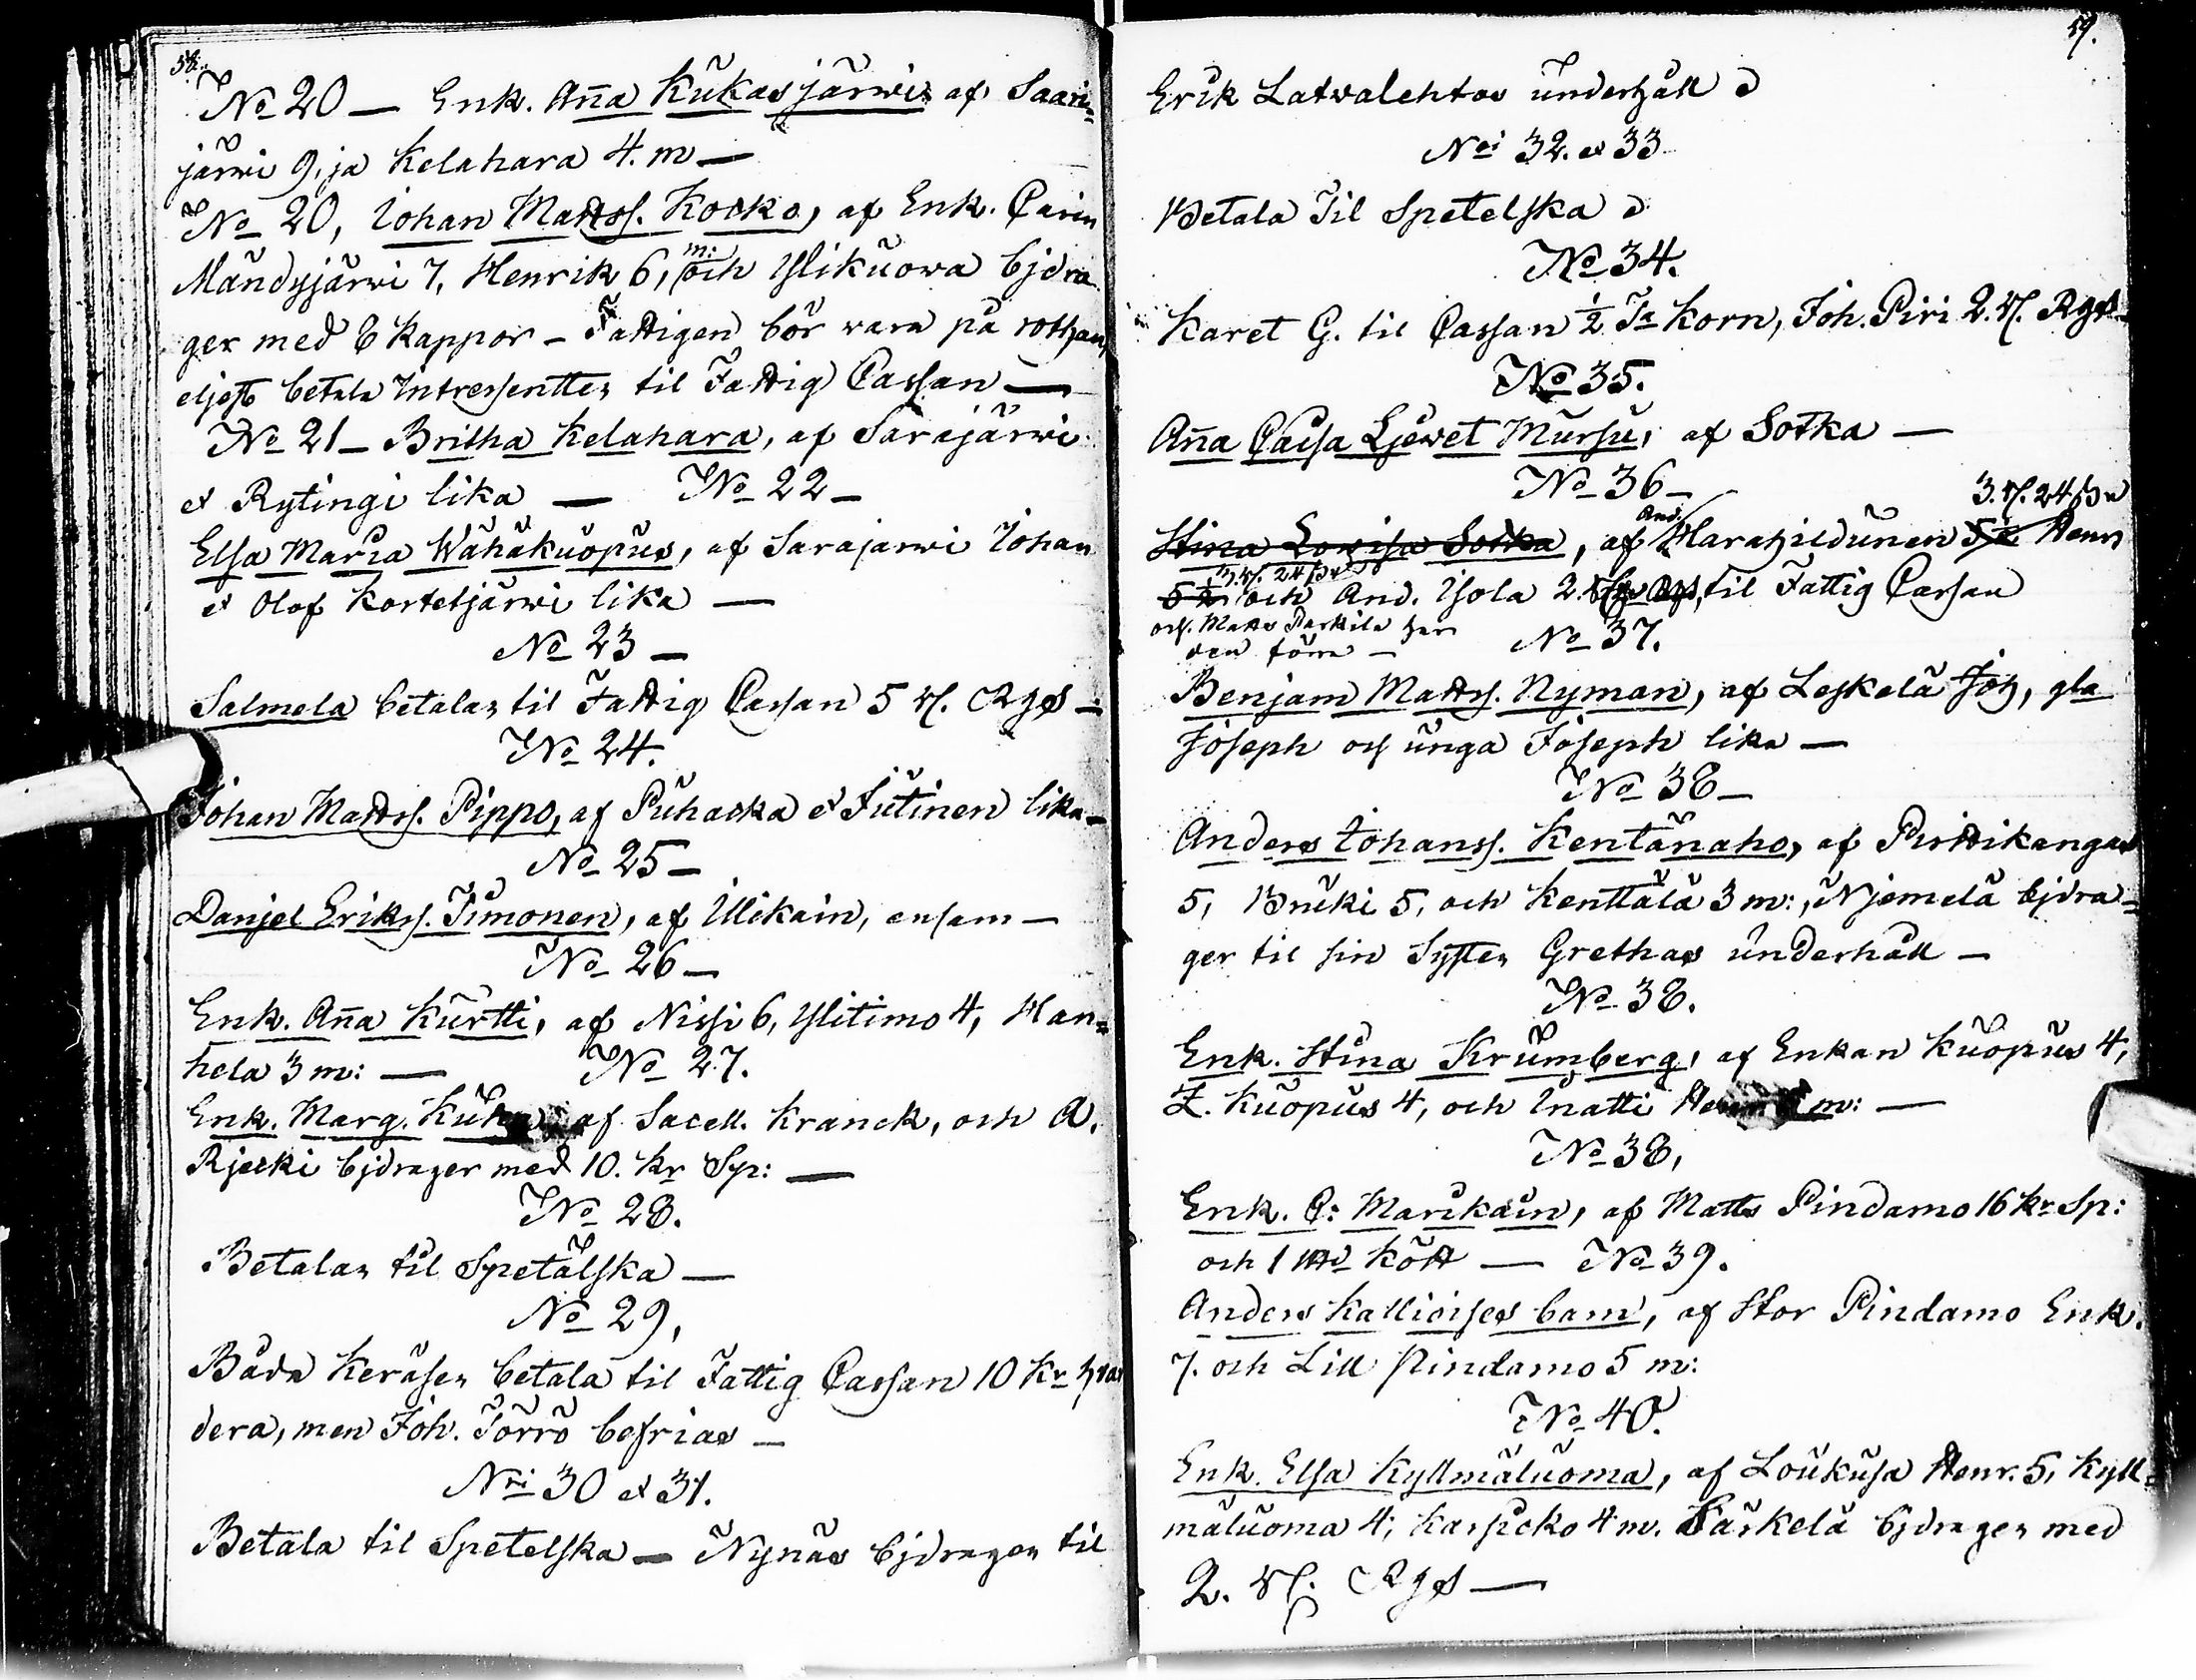 58.
No 20 — Enk. Anna Kukasjärwis af Saari=
järwi 9, ja Kelahara 4. m —
No 20, Johan Matts. Kocko, af Enk. Carin
Mändyjärwi 7, Henrik 6, m: och Ylikuowa bjdra
ger med 6 kappor — Fattigen bör wara på rothen,
eljest betala Intressenter til Fattig Cassan —
No 21 — Britha Kelahara, af Sarajärwi
et Rytingi lika — No 22 —
Elsa Maria Wähäkuopus, af Sarajarwi Johan
et Olof Korteljärwi lika —
No 23 —
Salmela betalar til Fattig Cassan 5 rf. Rgs —
No 24.
Johan Matts. Pippo, af Puhacka et Jutinen lika —
No 25 —
Danjel Eriks. Timonen, af Ulikain, ensam —
No 26 —
Enk. Anna Kurtti, af Nissi 6, Ylitimo 4, Han=
hela 3 m: — No 27.
Enk. Marg. af Sacell. Kranck, och A.
Rjecki bjdrager med 10. kr Sp: —
No 28.
Betalar til Spetälska —
No 29,
Båda Keräser betala til Fattig Cassan 10 kr hwar
dera, men Joh. Törrö befrias —
Nri 30 et 31.
Betala til Spetelska — Nynäs bjdrager til
59.
Erik Latvalehtos underhåll
Nri 32. et 33
Betala Til Spetelska
No 34.
Karet G. til Cassan ½ Ta Korn, Joh. Piri 2. rf. Rgs —
No 35.
Anna Caisa Ljewet Mursu, af Sotka —
No 36 —
3. rf. 24
And.
Stina Lowisa Sotka, af Harahildunen Henr
3. rf. 24
och And. Ysola 2. til Fattig Cassan
och. Matts Parkila har
den förra —
No 37.
Benjam Matts. Nyman, af Leskelä Joh, gla
Joseph och unga Joseph lika —
No 38 —
Anders Johanss. Kentänaho, af Pirttikangas
5, Bruki 5, och Kenttälä 3 m:, Njemelä bjdra=
ger til sin Syster Grethas underhåll —
No 38.
Enk. Stina Krumberg, af Enkan Kuopus 4,
Z. Kuopus 4, och Inatti m: —
No 38,
Enk. C: Marikain, af Matts Pindamo 16 kr Sp:
och 1 kött — No 39.
Anders Kallioises barn, af Stor Pindamo Enk.
7. och Lill Pindamo 5 m:
No 40.
Enk. Elsa Kyllmäluoma, af Loukusa Henr. 5, Kyll=
mäluoma 4, Karsicko 4 m. Särkelä bjdrager med
2. rf. Rgs —